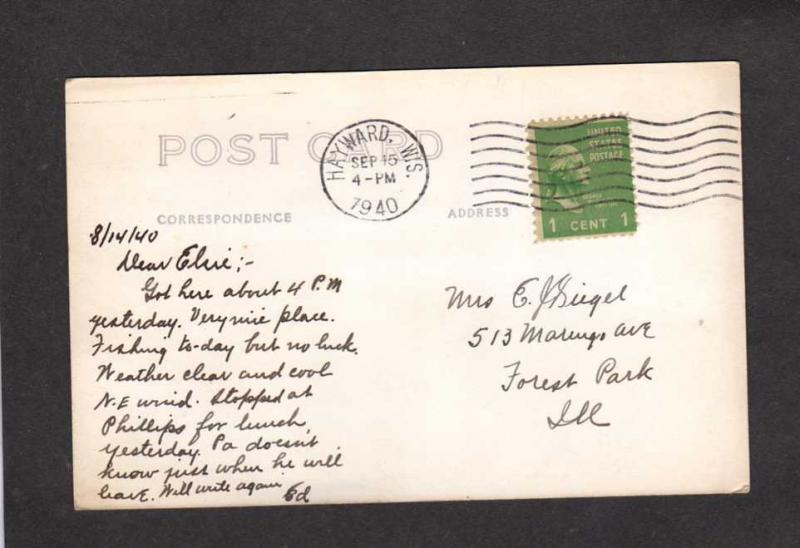 POST CARD
HAYWARD, WIS.
SEP 15
4-PM
1940
UNITED
STATES
POSTAGE
1 CENT 1
CORRESPONDENCE
ADDRESS
8/14/40
Dear Elsie;-
Got here about 4 P.M
yesterday. Very nice place.
Fishing to-day but no luck.
Weather clear and cool
N-E wind. Stopped at
Phillips for lunch,
yesterday. Pa doesn't
know just when he will
leave. Will write again
Ed
Mrs E. J. Giegel
513 Marengo Ave
Forest Park
Ill